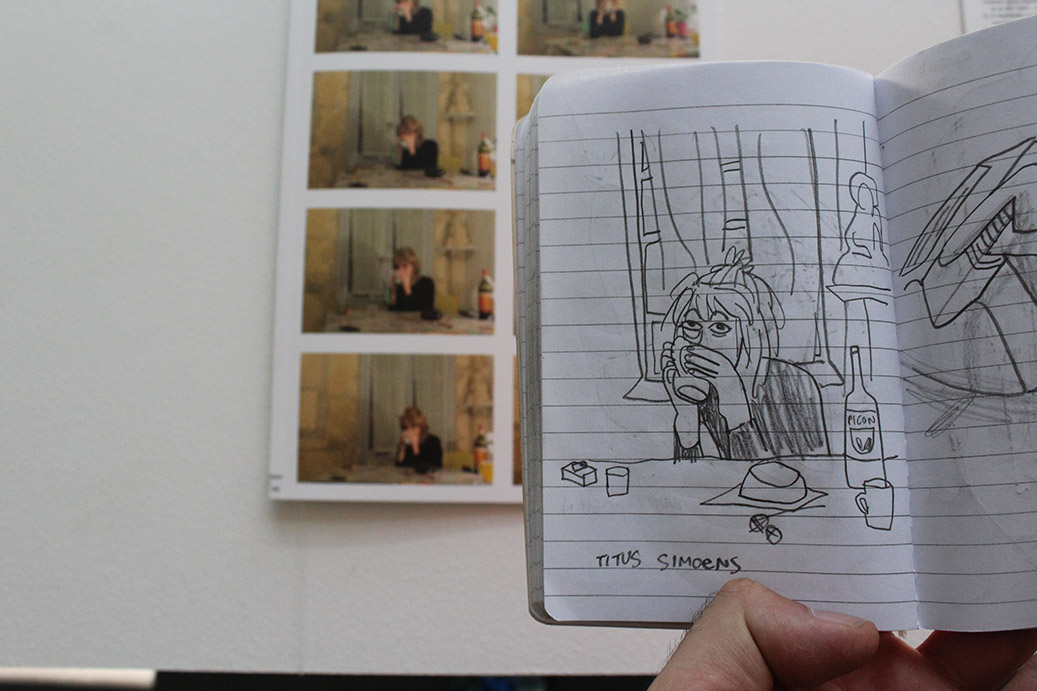 PICON
TITUS SIMOENS